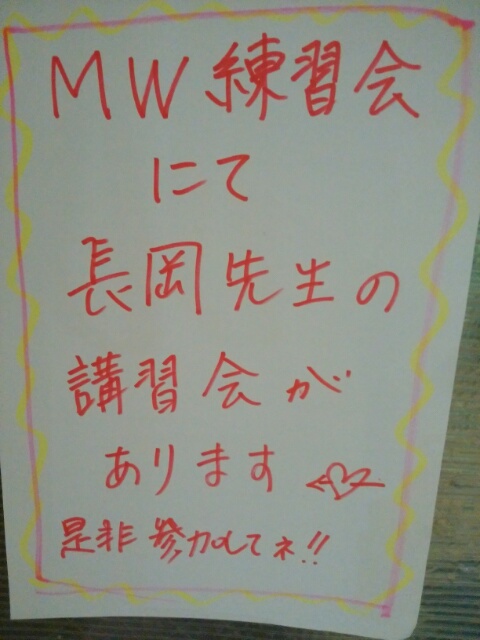 MW練習会
にて
長岡先生の
講習会が
あります
是非参加してネ!!